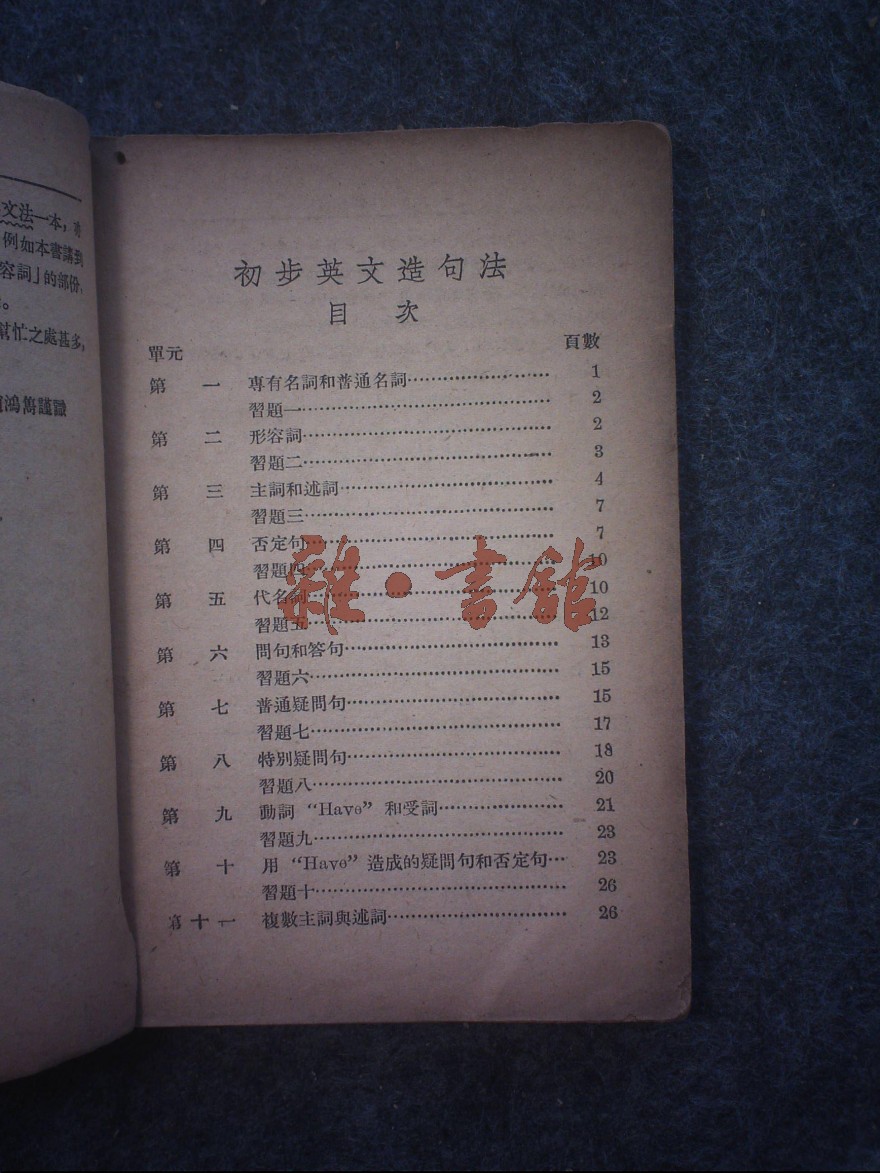 文法一本,
例如本書講到
容詞」的部份,
幫忙之處甚多,
鴻雋謹識
初步英文造句法
目 次
單元 頁數
第 一 專有名詞和普通名詞 1
習題一 2
第 二 形容詞 2
習題二 3
第 三 主詞和述詞 4
習題三 7
第 四 否定句 7
習題四 10
第 五 代名詞 10
習題五 12
第 六 問句和答句 13
習題六 15
第 七 普通疑問句 15
習題七 17
第 八 特別疑問句 18
習題八 20
第 九 動詞 “Have” 和受詞 21
習題九 23
第 十 用 “Have” 造成的疑問句和否定句 23
習題十 26
第十一 複數主詞與述詞 26
雜·書館